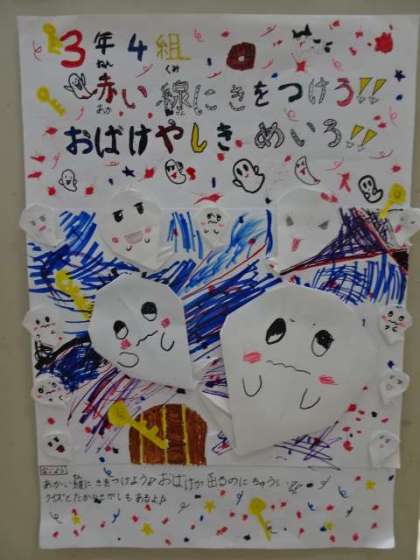 3年4組
ねん くみ
赤い線にきをつけろ!!
あか せん
おばけやしきめいろ!!
あかい線にきをつけよう♪おばけが出るのにちゅうい!!
クイズとたからさがしもあるよ♪